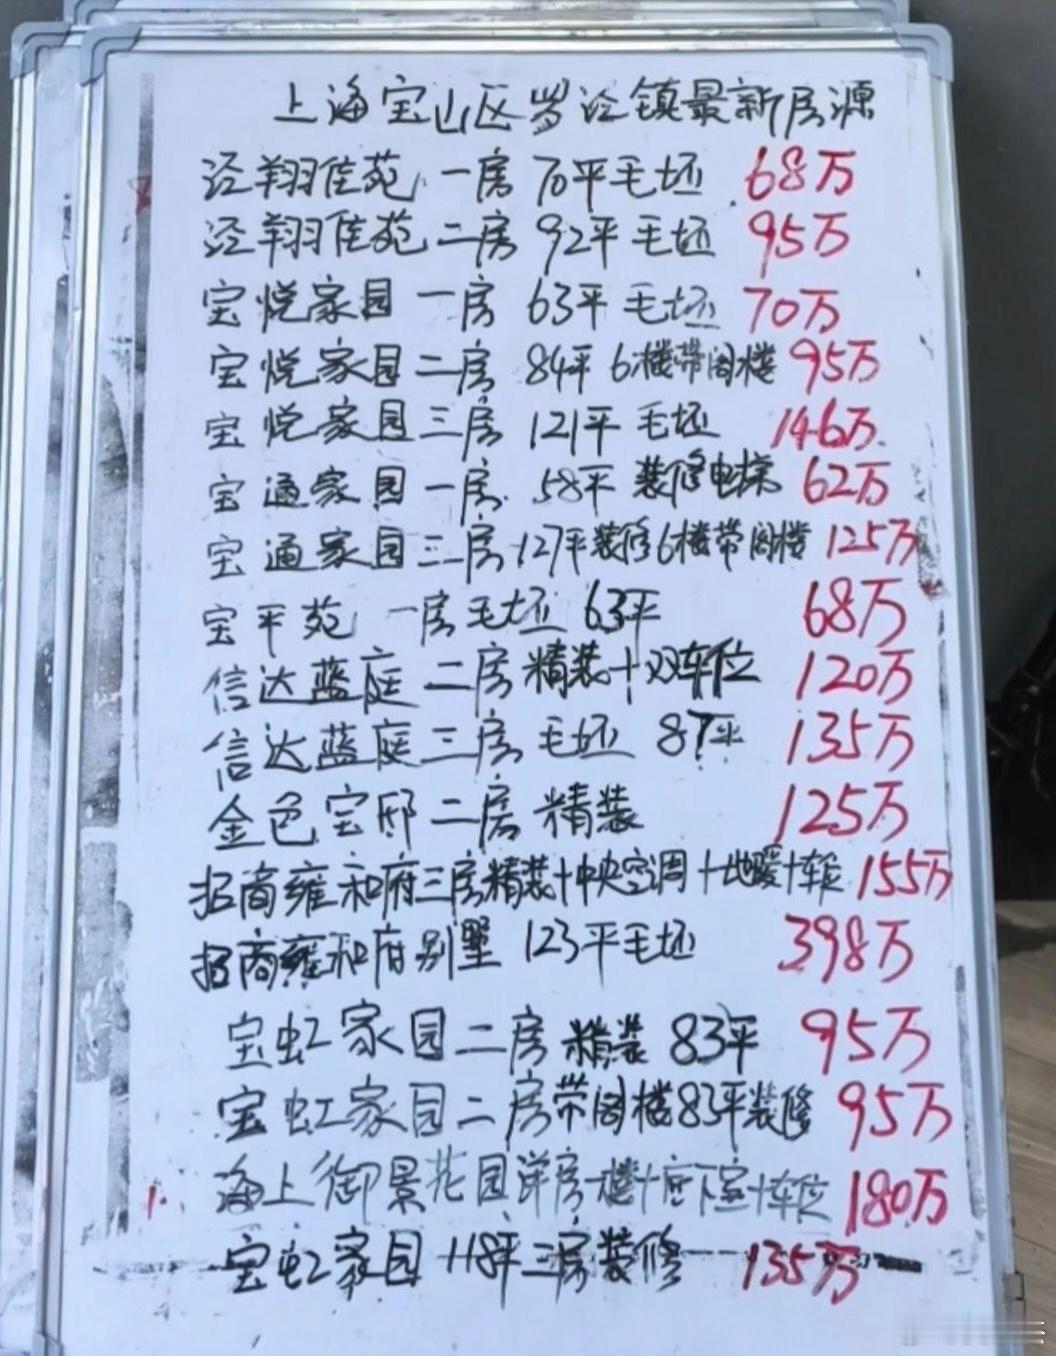 上海宝山区罗泾镇最新房源
泾翔佳苑 一房 70平毛坯 68万
泾翔佳苑 二房 92平 毛坯 95万
宝悦家园 一房 63平 毛坯 70万
宝悦家园 二房 84平 6楼带阁楼 95万
宝悦家园 三房 121平 毛坯 146万
宝通家园 一房 58平 装修电梯 62万
宝通家园 三房 127平装修6楼带阁楼 125万
宝平苑 一房毛坯 63平 68万
信达蓝庭 二房 精装+双车位 120万
信达蓝庭 三房 毛坯 87平 135万
金色宝邸 二房 精装 125万
招商雍和府三房精装+中央空调+地暖+车位 155万
招商雍和府别墅 123平毛坯 398万
宝虹家园 二房 精装 83平 95万
宝虹家园 二房带阁楼83平装修 95万
海上御景花园洋房一楼+地下室+车位 180万
宝虹家园 118平三房装修 135万